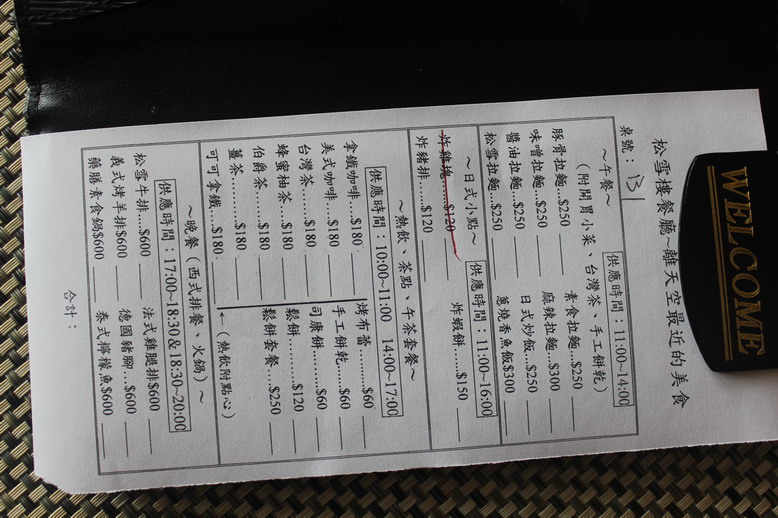 WELCOME
松雪樓餐廳~離天空最近的美食
桌號：13
~午餐~ 供應時間：11:00~14:00
（附開胃小菜、台灣茶、手工餅乾）
豚骨拉麵...$250 素食拉麵...$250
味噌拉麵...$250 麻辣拉麵...$300
醬油拉麵...$250 日式炒飯...$250
松雪拉麵...$250 蔥燒香魚飯$300
~日式小點~ 供應時間：11:00~16:00
炸雞塊......$120 炸蝦餅......$150
炸豬排......$120
~熱飲、茶點、午茶套餐~
供應時間：10:00~11:00 14:00~17:00
拿鐵咖啡...$180 烤布蕾.........$60
美式咖啡...$180 手工餅乾...$60
台灣茶......$180 司康餅.........$60
蜂蜜柚茶...$180 鬆餅............$120
伯爵茶......$180 鬆餅套餐...$250
薑茶.........$180 ←（熱飲附點心）
可可拿鐵...$180
~晚餐（西式排餐、火鍋）~
供應時間：17:00~18:30&18:30~20:00
松雪牛排...$600 法式雞腿排$600
義式烤羊排$600 德國豬腳...$600
藥膳素食鍋$600 泰式檸檬魚$600
合計：